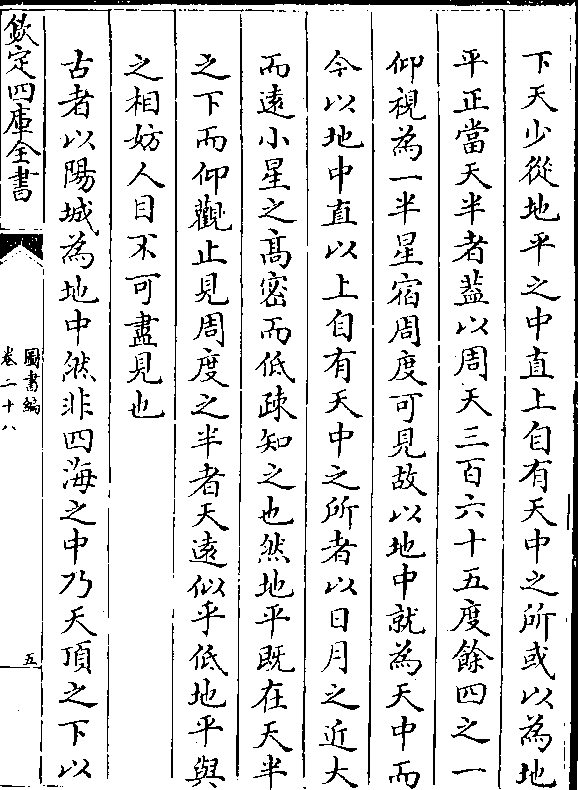 下天少從地平之中直上自有天中之所或以為地
平正當天半者葢以周天三百六十五度餘四之一
仰視為一半星宿周度可見故以地中就為天中而
今以地中直以上自有天中之所者以日月之近大
而遠小星之髙密而低疎知之也然地平既在天半
之下而仰觀止見周度之半者天遠似乎低地平與
之相妨人目不可盡見也
古者以陽城為地中然非四海之中乃天頂之下以
欽定四庫全書
圖書編
卷二十八
五